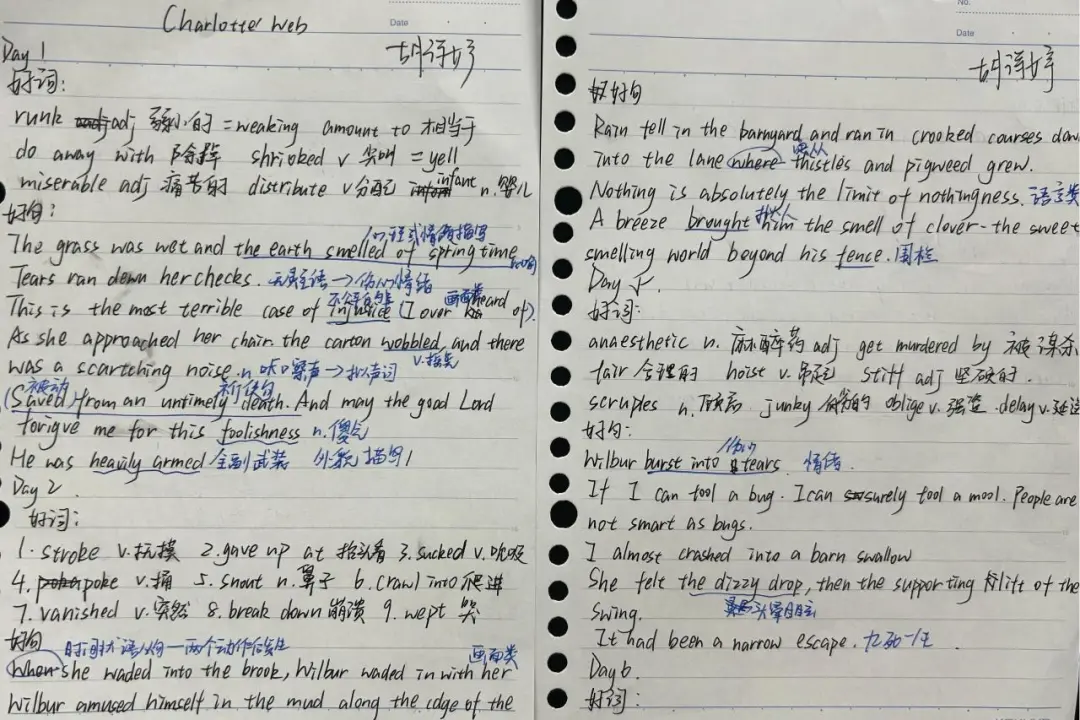 Charlotte Web
Date
胡详婷
Day 1
好词:
runk adj 弱小的 = weaking amount to 相当于
do away with 除掉 shrioked v 尖叫 = yell
miserable adj 痛苦的 distribute v 分配 infant n. 婴儿
好句:
The grass was wet and the earth smelled of springtime
Tears ran down her checks. 无灵主语→伤心情绪
画面类
This is the most terrible case of injustice (I over heard of).
As she approached her chair. the carton wobbled, and there
was a scartching noise. n 吱口察声→拟声词 v.摇晃
被动
(Saved) from an untimely death. And may the good Lord
forigve me for this foolishness n.傻气
He was heavily armed 全副武装 外貌描写
Day 2
好词:
1. stroke v. 抚摸 2. gave up at 抬头看 3. sucked v. 吮吸
4. poke v. 捅 5. snout n. 鼻子 6. crawl into 爬进
7. vanished v. 突然 8. break down 崩溃 9. wept 哭
好句
时间状语从句—两个动作 画面类
When she waded into the brook, Wilbur waded in with her
Wilbur amused himself in the mud along the edge of the
No.
Date
胡详婷
好句
Rain fell in the barnyard and ran in crooked courses down
into the lane where thistles and pigweed grew.
Nothing is absolutely the limit of nothingness. 语言类
A breeze brought him the smell of clover - the sweet
smelling world beyond his fence. 围栏
Day 5.
好词:
anaesthetic n. 麻醉药 adj get murdered by 被谋杀
fair 合理的 hoist v. 吊起 stiff adj 坚硬的.
scruples n. 顾虑 junky oblige v. 强迫. delay v. 延迟
好句:
伤心
Wilbur burst into tears 情绪.
If I can fool a bug. I can surely fool a mool. People are
not smart as bugs.
I almost crashed into a barn swallow
She felt the dizzy drop, then the supporting lift of the
swing. 头晕目眩
It had been a narrow escape. 九死一生
Day 6.
好词: